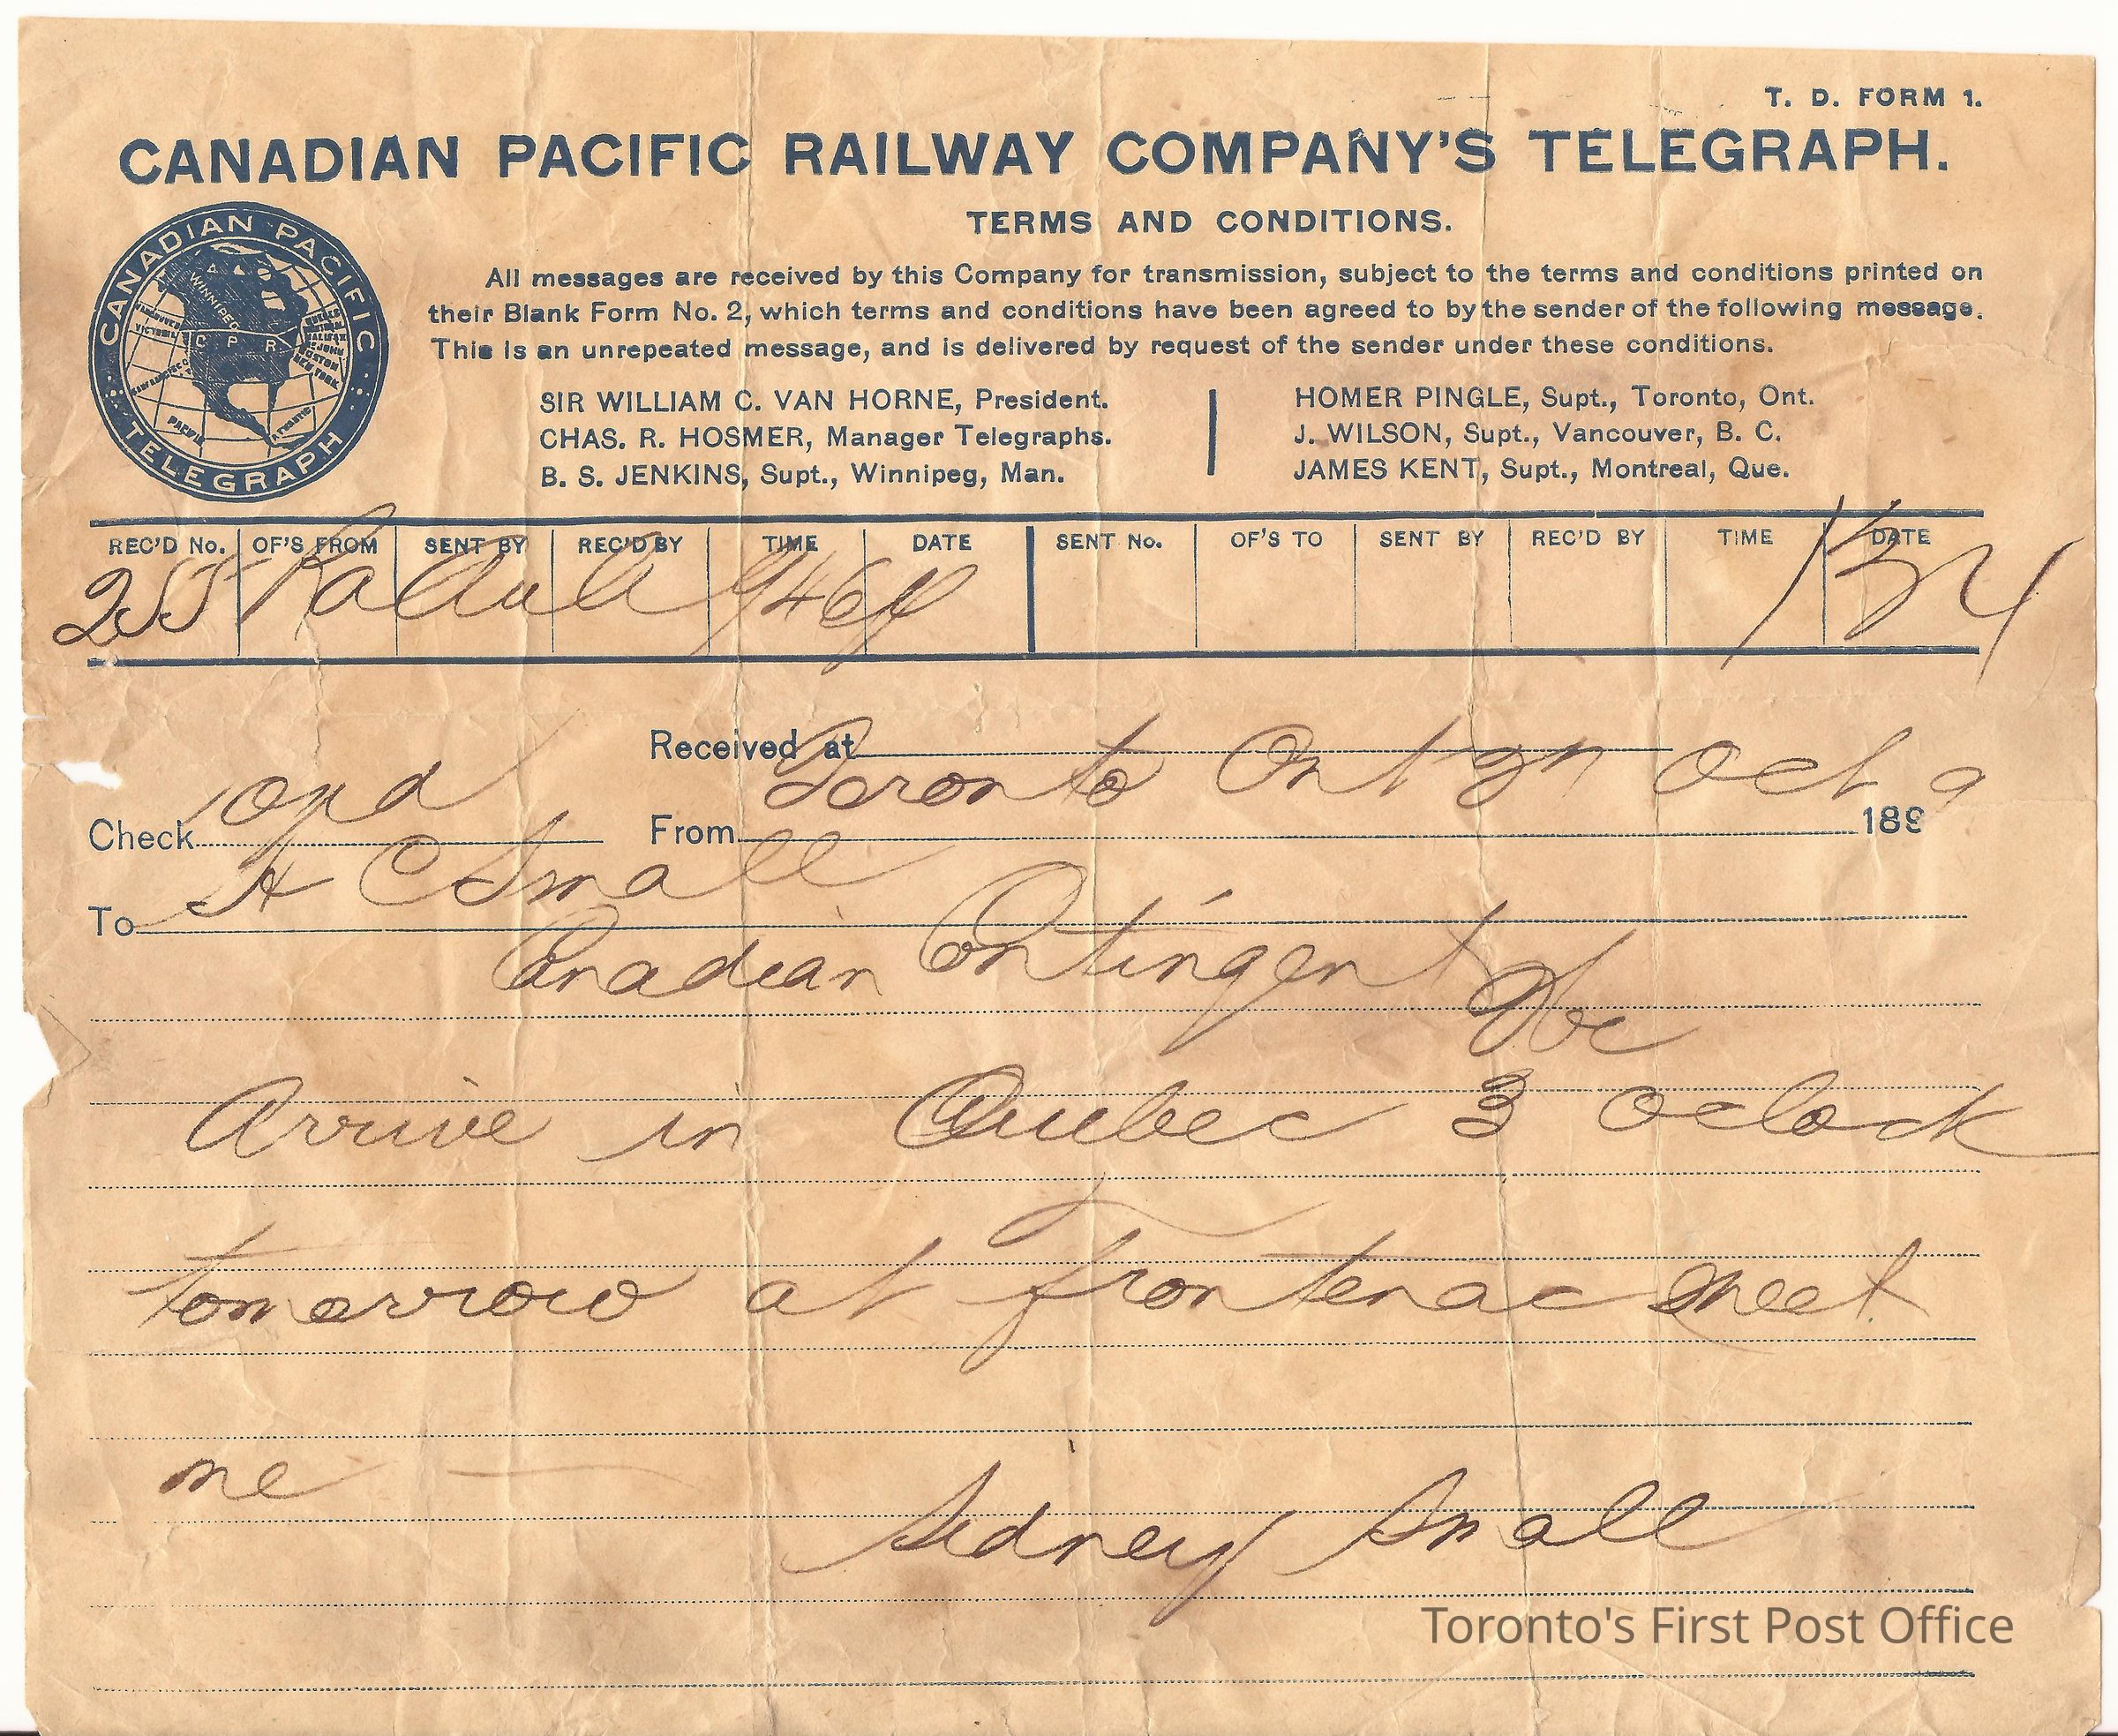 T. D. FORM 1.
CANADIAN PACIFIC RAILWAY COMPANY'S TELEGRAPH.
TERMS AND CONDITIONS.
CANADIAN PACIFIC TELEGRAPH
WINNIPEG
VANCOUVER
VICTORIA
C P R
BOSTON
NEW YORK
SAN FRANCISCO
PACIFIC
ATLANTIC
All messages are received by this Company for transmission, subject to the terms and conditions printed on
their Blank Form No. 2, which terms and conditions have been agreed to by the sender of the following message.
This is an unrepeated message, and is delivered by request of the sender under these conditions.
SIR WILLIAM C. VAN HORNE, President.
CHAS. R. HOSMER, Manager Telegraphs.
B. S. JENKINS, Supt., Winnipeg, Man.
HOMER PINGLE, Supt., Toronto, Ont.
J. WILSON, Supt., Vancouver, B. C.
JAMES KENT, Supt., Montreal, Que.
REC'D No. OF'S FROM SENT BY REC'D BY TIME DATE SENT No. OF'S TO SENT BY REC'D BY TIME DATE
255
Received at
Toronto Ont Oct 9
Check
From 189
To H C Small
Canadian Contingent
Arrive in Quebec 3 Oclock
tomorrow at frontenac meet
me
Sidney Small
Toronto's First Post Office